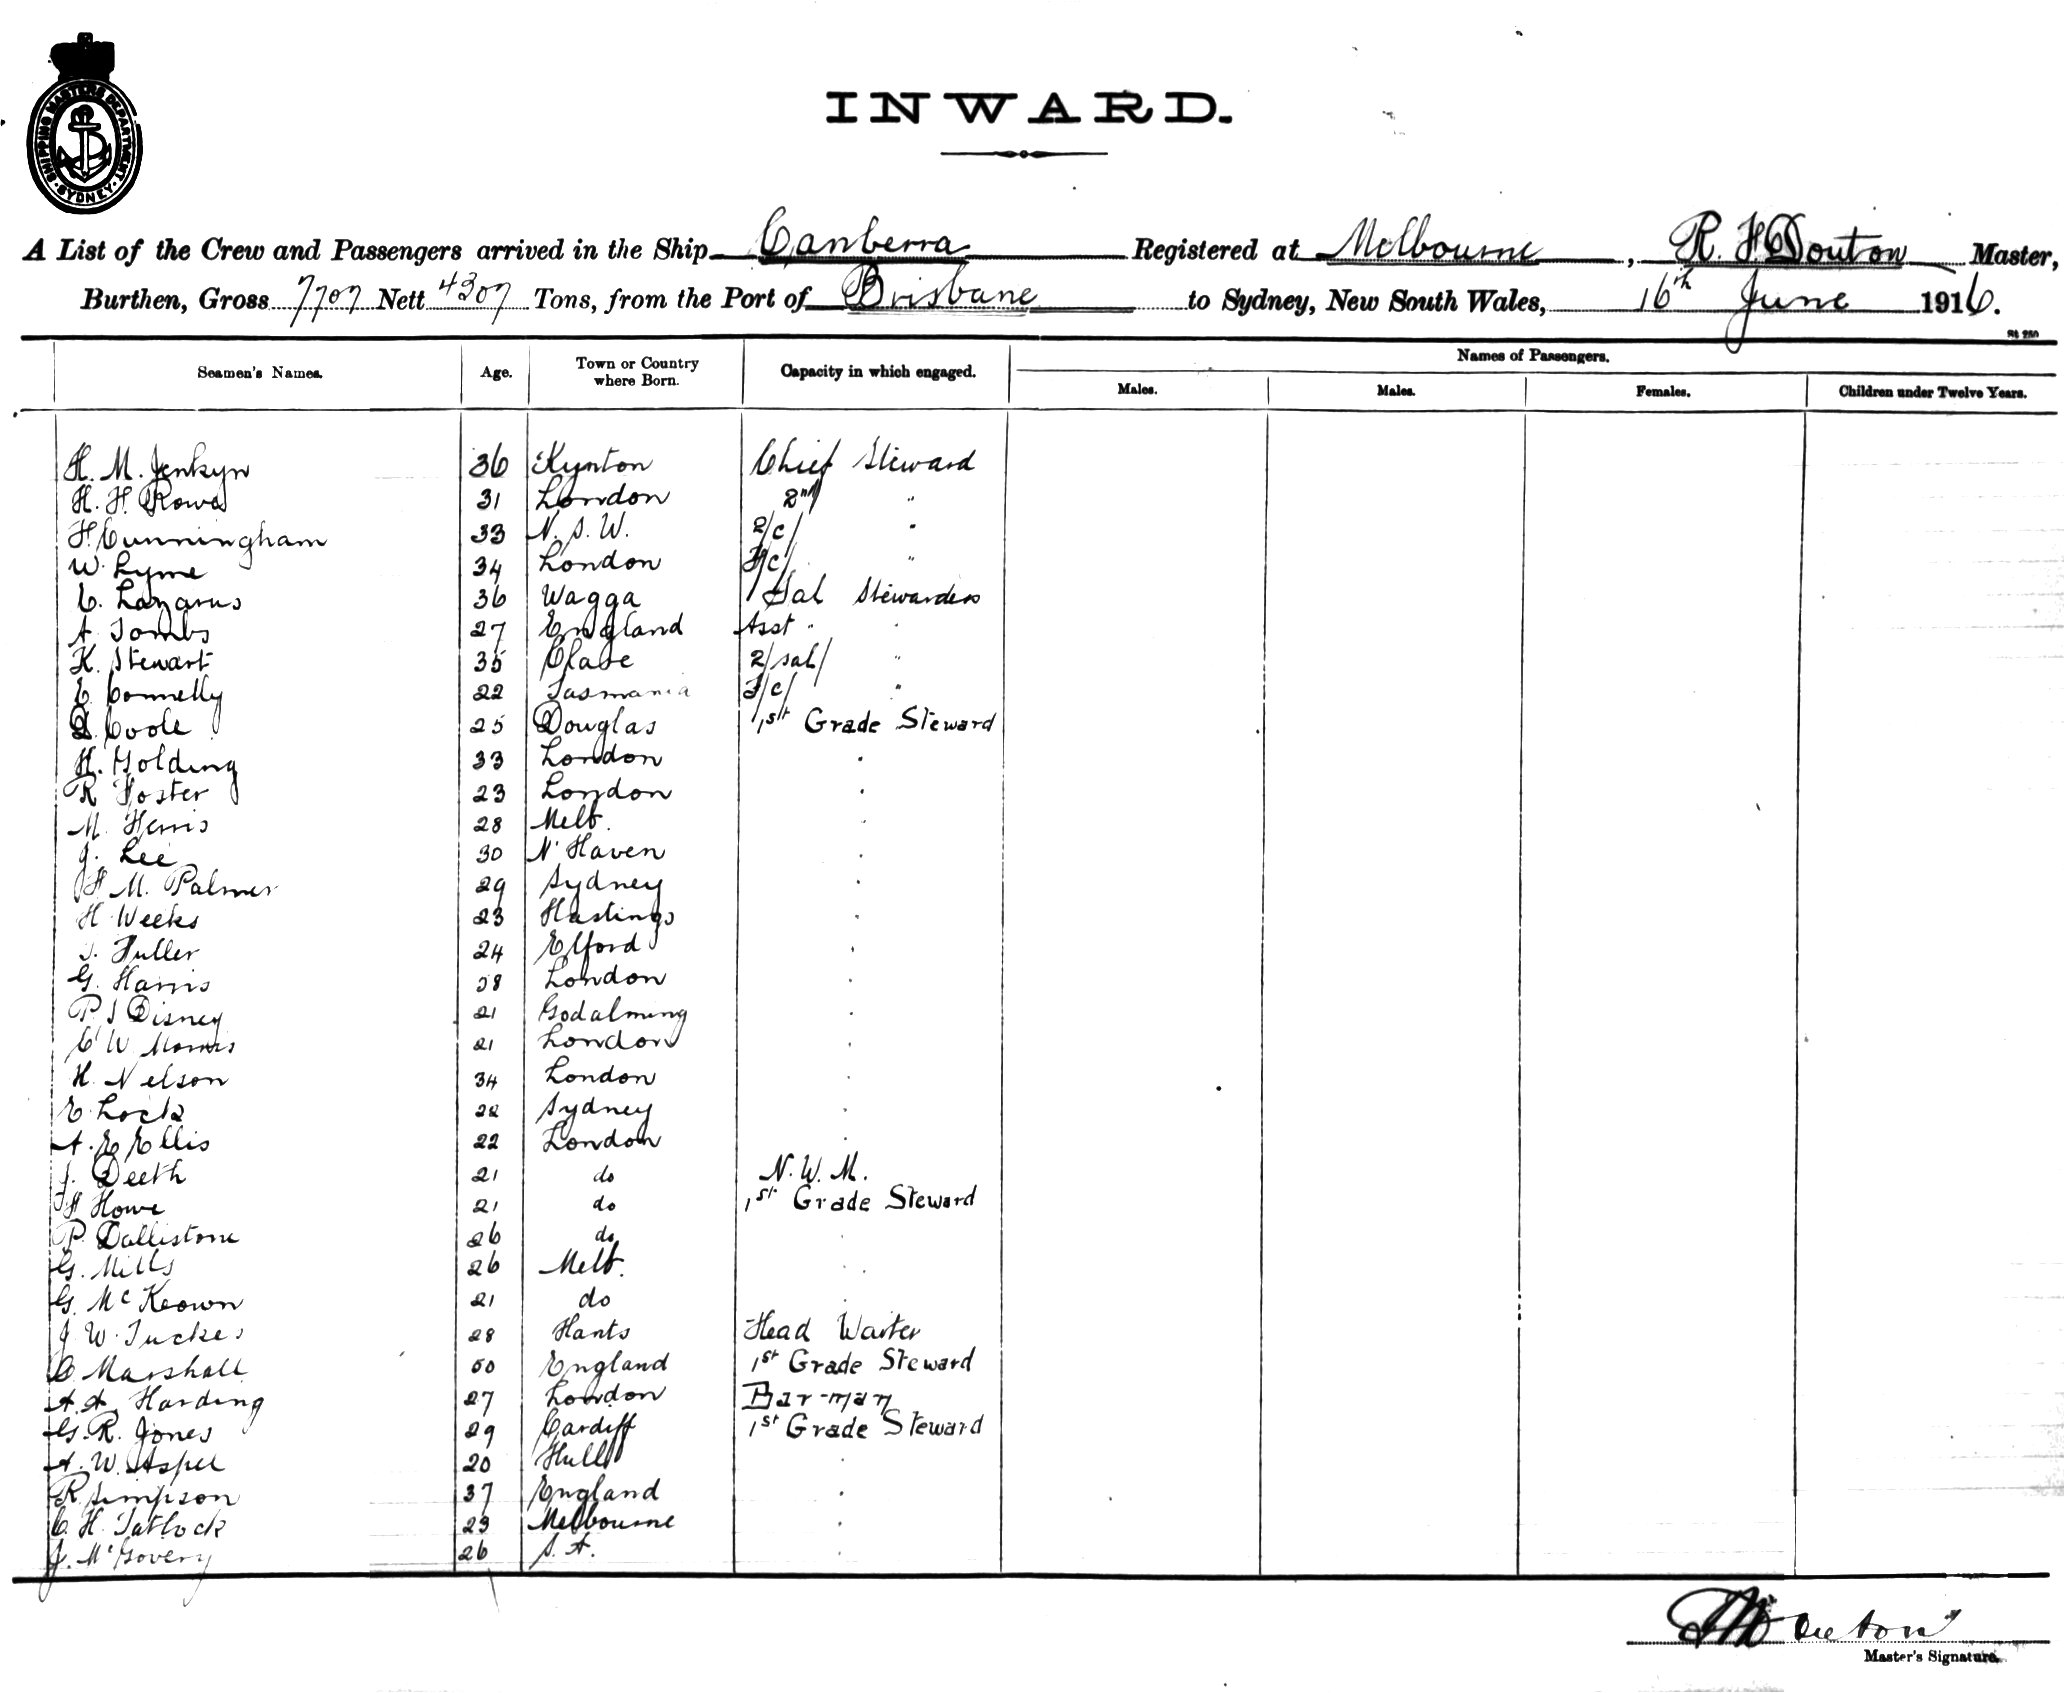 SHIPPING MASTERS DEPARTMENT
· SYDNEY ·
INWARD.
A List of the Crew and Passengers arrived in the Ship Canberra Registered at Melbourne, R. H. Douton Master,
Burthen, Gross 7707 Nett 4307 Tons, from the Port of Brisbane to Sydney, New South Wales, 16th June 1916.
Seamen's Names. Age. Town or Country where Born. Capacity in which engaged. Names of Passengers.
Males. Males. Females. Children under Twelve Years.
H. M. Jenkyn 36 Kynton Chief Steward
H. H. Rowa 31 London 2nd "
H. Cunningham 33 N. S. W. 2/c/ "
W. Lyme 34 London 3/c/ "
C. Lazarus 36 Wagga 1/Sal Stewardess
A. Tombs 27 England Asst " "
K. Stewart 35 Clare 2/sal/ "
E. Connelly 22 Tasmania 3/c/ "
Coole 25 Douglas 1st Grade Steward
H. Golding 33 London "
R Foster 23 London "
M. Ferris 28 Melb. "
J. Lee 30 N' Haven "
H M. Palmer 29 Sydney "
H Weeks 23 Hastings "
T. Fuller 24 Elford "
G. Harris 38 London "
P. J Disney 21 Godalming "
C W Morris 21 London "
H. Nelson 34 London "
E. Lock 22 Sydney "
A. E Ellis 22 London "
J. Deeth 21 do N. W. M.
H Howe 21 do 1st Grade Steward
P. Dallistone 26 do "
G. Mills 26 Melb. "
G. McKeown 21 do "
J. W. Tucker 28 Hants Head Waiter
C Marshall 50 England 1st Grade Steward
A. A. Harding 27 London Bar-man
G. R. Jones 29 Cardiff 1st Grade Steward
A. W. Aspel 20 Hull "
R. Simpson 37 England "
C. H. Tatlock 23 Melbourne "
J. McGovery 26 S. A. "
Douton
Master's Signature.